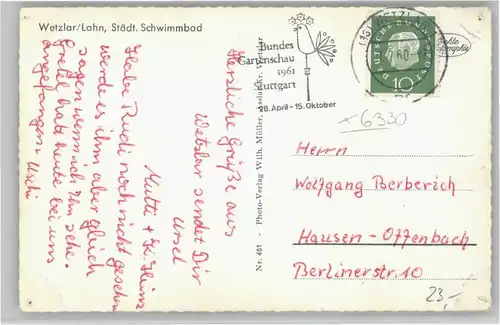 Wetzlar/Lahn, Städt. Schwimmbad
Herzliche Grüße aus
Wetzlar sendet Dir
Ursel
Mutti + Gr. Heinz
Habe Rudi noch nicht gesehen
werde es ihm aber gleich
sagen wenn ich ihn sehe.
Gretel hat heute bei uns
angefangen. Uschi
Nr. 481 - Photo-Verlag Wilh. Müller, Wetzlar
Bundes
Gartenschau
1961
Stuttgart
28. April - 15. Oktober
DEUTSCHE BUNDESPOST
10
× 6330
Herrn
Wolfgang Berberich
Hausen-Offenbach
Berlinerstr. 10
23,-